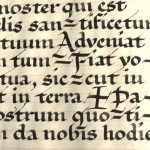 noster qui est
lis santificetur
tuum Adveniat
n tum Fiat vo
tua, sic cut in
et in terra Pa
ostrum quoti
n da nobis hodie